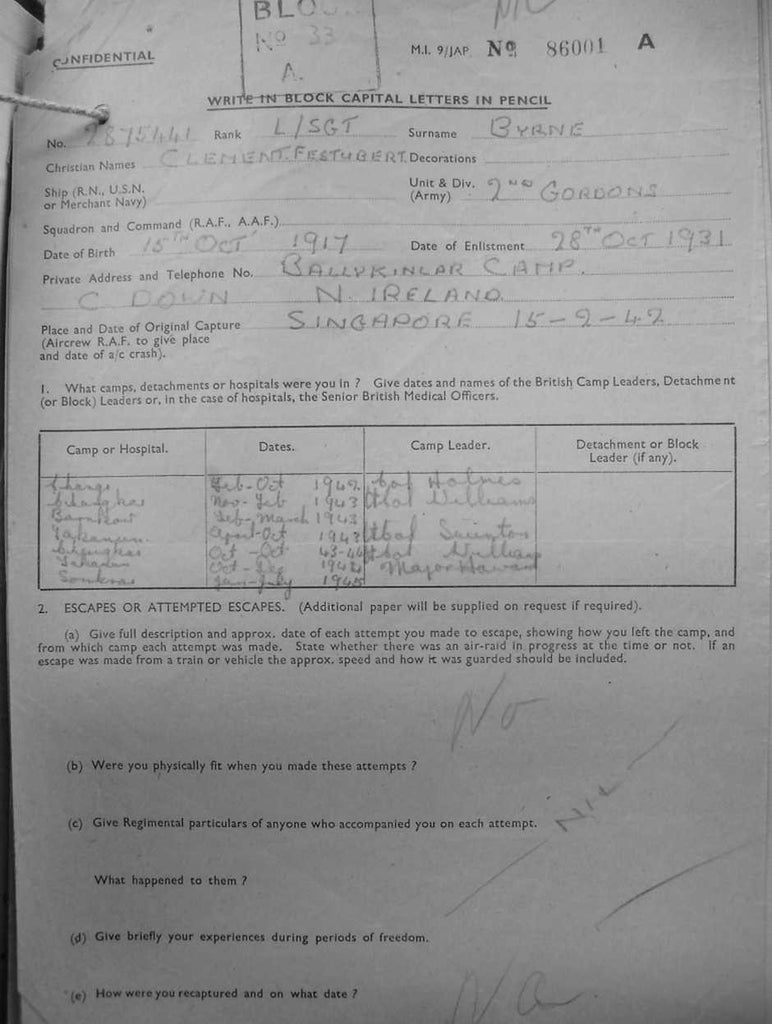 BLO
Nº 33
A.
NIL
CONFIDENTIAL
M.I. 9/JAP. Nº 86001 A
WRITE IN BLOCK CAPITAL LETTERS IN PENCIL
No. 2875441 Rank L/SGT Surname BYRNE
Christian Names CLEMENT. FESTUBERT. Decorations
Ship (R.N., U.S.N. or Merchant Navy)
Unit & Div. (Army) 2ND GORDONS
Squadron and Command (R.A.F., A.A.F.)
Date of Birth 15TH OCT 1917 Date of Enlistment 28TH OCT 1931
Private Address and Telephone No. BALLYKINLAR CAMP.
C DOWN N. IRELAND.
Place and Date of Original Capture SINGAPORE 15-2-42
(Aircrew R.A.F. to give place
and date of a/c crash).
1. What camps, detachments or hospitals were you in ? Give dates and names of the British Camp Leaders, Detachment
(or Block) Leaders or, in the case of hospitals, the Senior British Medical Officers.
Camp or Hospital. Dates. Camp Leader. Detachment or Block
Leader (if any).
Changi Feb-Oct 1942 Holmes
Nov-Feb 1943 Williams
Feb-March 1943
April-Oct 1943
Oct-Oct 43-44 Williams
Oct-Dec 1944 Major
Jan-July 1945
2. ESCAPES OR ATTEMPTED ESCAPES. (Additional paper will be supplied on request if required).
(a) Give full description and approx. date of each attempt you made to escape, showing how you left the camp, and
from which camp each attempt was made. State whether there was an air-raid in progress at the time or not. If an
escape was made from a train or vehicle the approx. speed and how it was guarded should be included.
No
(b) Were you physically fit when you made these attempts ?
(c) Give Regimental particulars of anyone who accompanied you on each attempt.
NIL
What happened to them ?
(d) Give briefly your experiences during periods of freedom.
(e) How were you recaptured and on what date ?